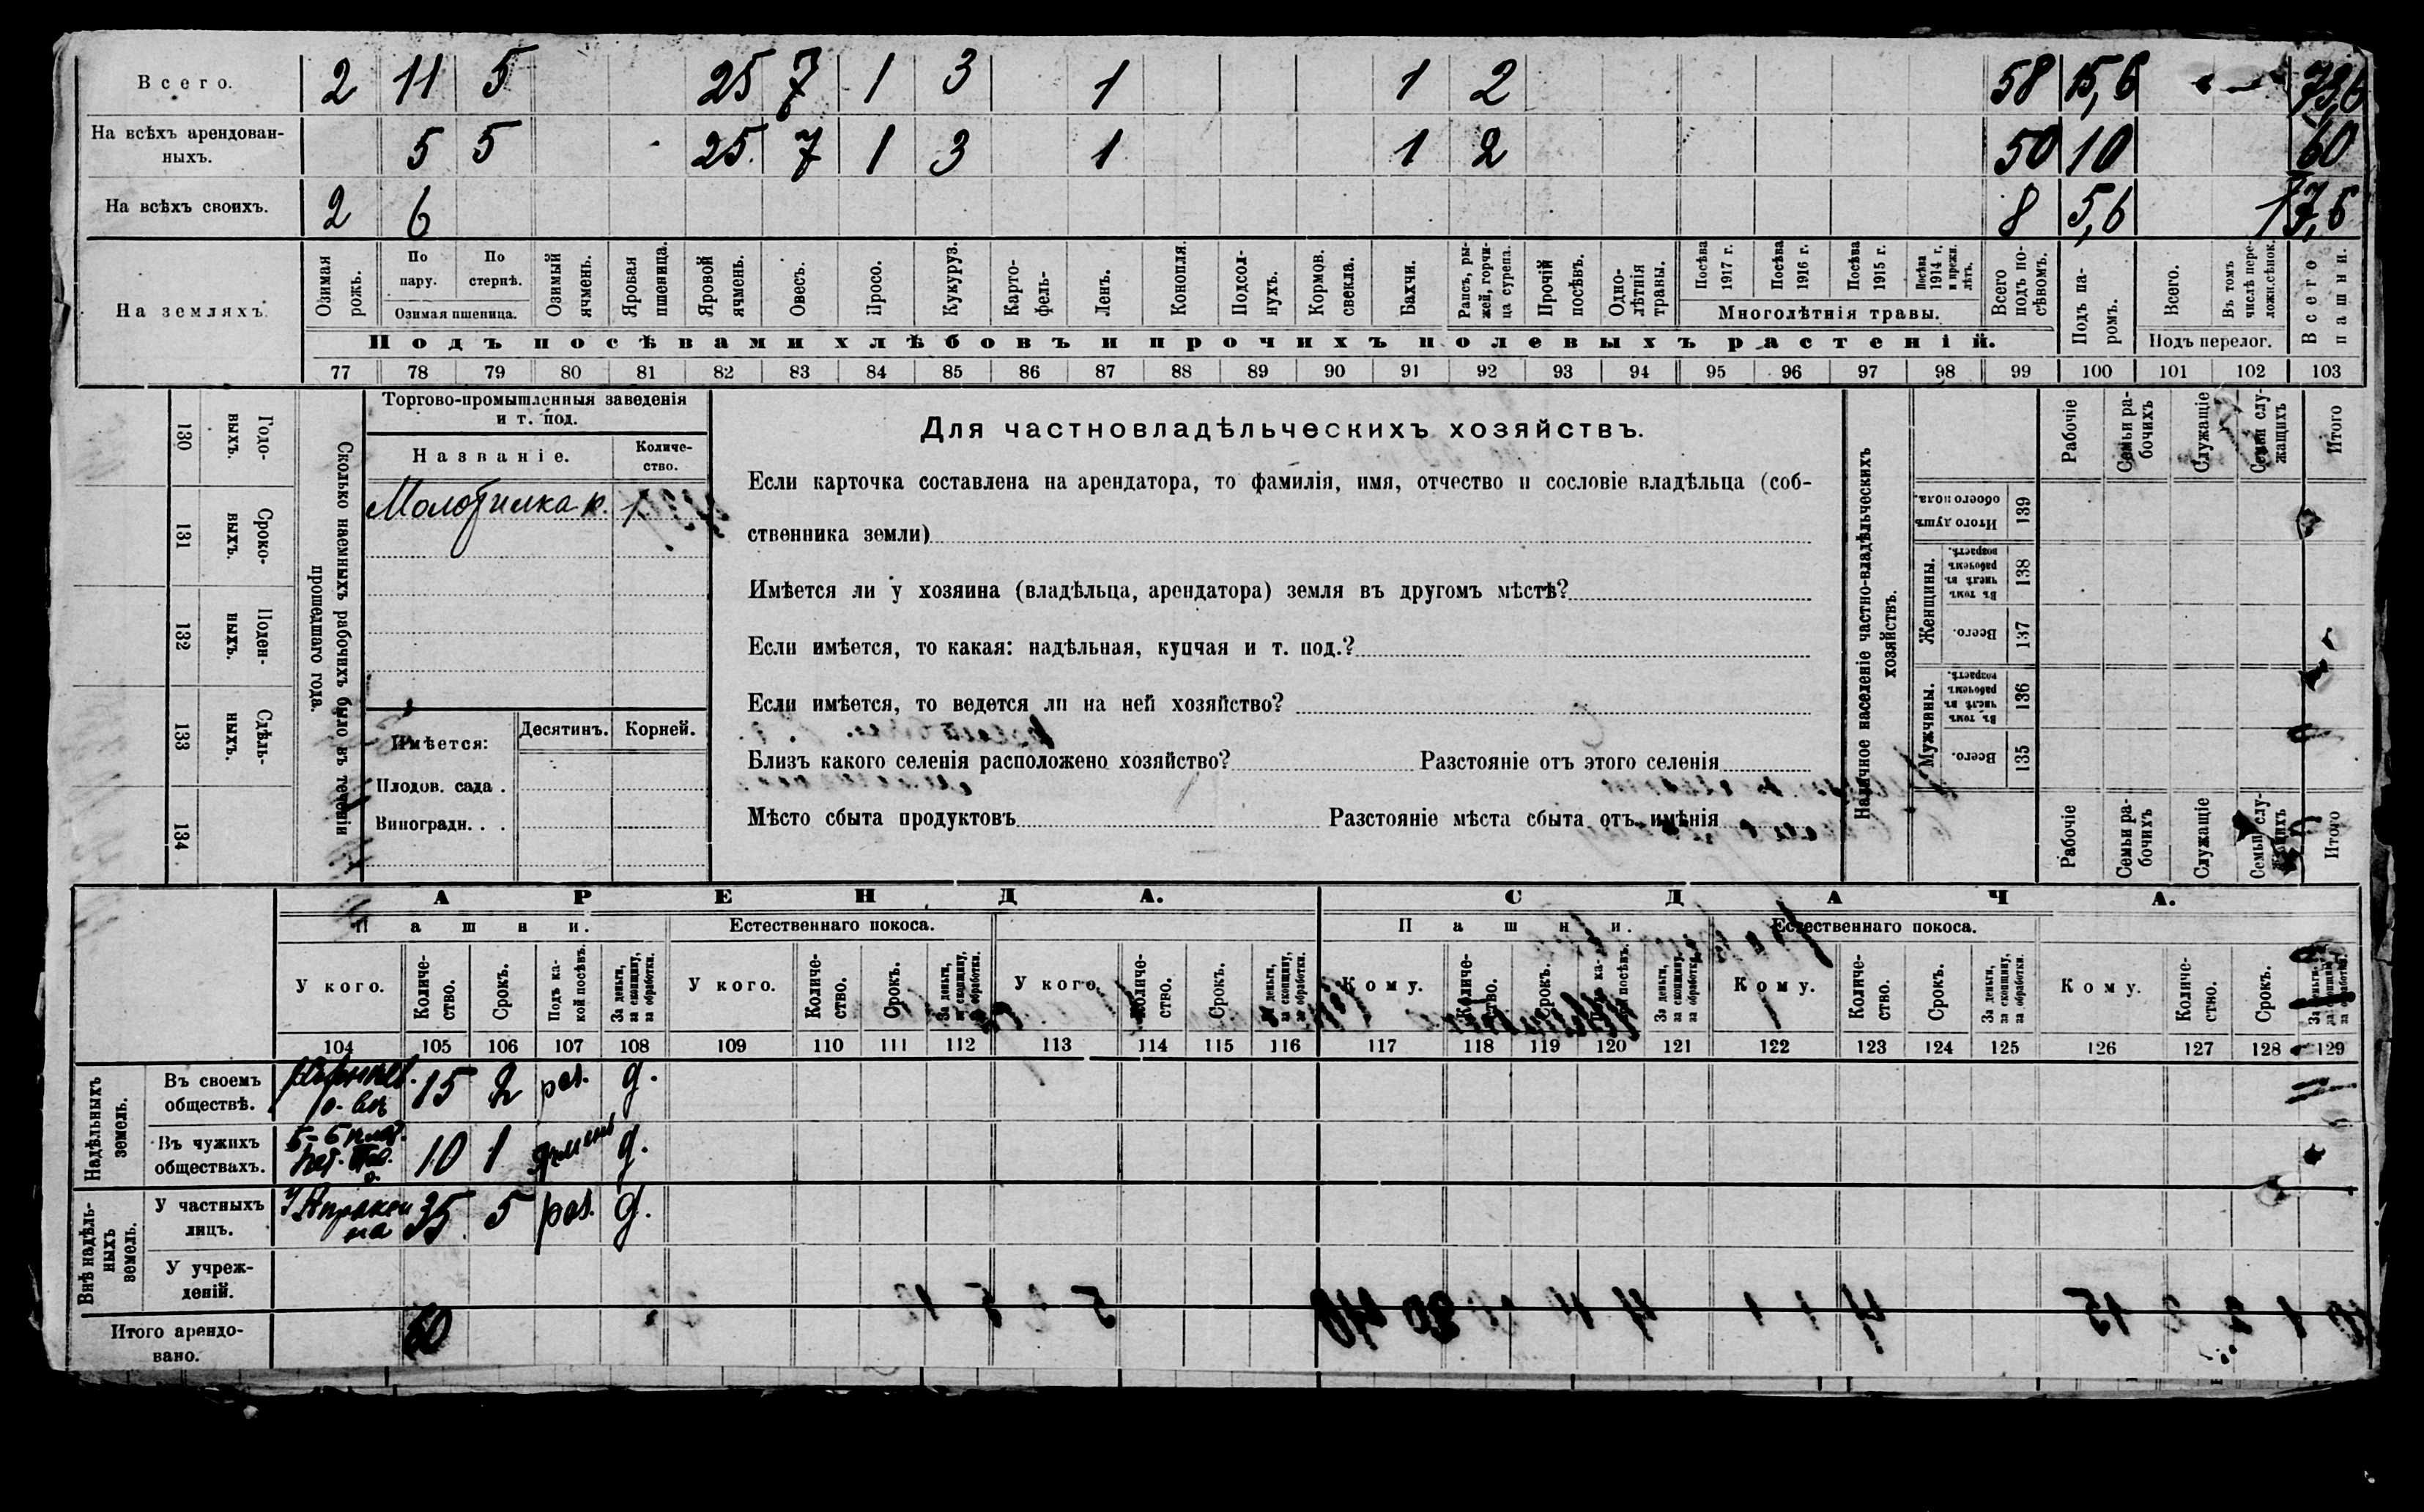 Всего. 2 11 5 25 7 1 3 1 1 2 58 15,6 73,6
На всѣхъ арендован-
ныхъ. 5 5 25 7 1 3 1 1 2 50 10 60
На всѣхъ своихъ. 2 6 8 5,6 17,6
На земляхъ.
Озимая рожь.
По пару.
По стернѣ.
Озимая пшеница.
Озимый ячмень.
Яровая пшеница.
Яровой ячмень.
Овесъ.
Просо.
Кукуруз.
Карто-
фель-
Ленъ.
Конопля.
Подсол-
нухъ.
Кормов. свекла.
Бахчи.
Рапсъ, ры-
жей, горчи-
ца сурепа.
Прочій посѣвъ.
Одно-
лѣтнія травы.
Посѣва 1917 г.
Посѣва 1916 г.
Посѣва 1915 г.
Посѣва 1914 г. и прежн. лѣтъ.
Многолѣтнія травы.
Всего подъ по-
сѣвомъ.
Подъ па-
ромъ.
Всего.
Въ томъ числѣ пере-
ложн.сѣнок.
Подъ перелог.
Всего пашни.
Подъ посѣвами хлѣбовъ и прочихъ полевыхъ растеній.
77 78 79 80 81 82 83 84 85 86 87 88 89 90 91 92 93 94 95 96 97 98 99 100 101 102 103
130 Годо-
выхъ.
131 Сроко-
выхъ.
132 Поден-
ныхъ.
133 Сдѣль-
ныхъ.
134
Сколько наемныхъ рабочихъ было въ теченіи
прошедшаго года.
Торгово-промышленныя заведенія
и т. под.
Названіе.
Количе-
ство.
Молотилка к. 1
Имѣется:
Десятинъ.
Корней.
Плодов. сада .
Виноградн. . .
Для частновладѣльческихъ хозяйствъ.
Если карточка составлена на арендатора, то фамилія, имя, отчество и сословіе владѣльца (соб-
ственника земли)
Имѣется ли у хозяина (владѣльца, арендатора) земля въ другомъ мѣстѣ?
Если имѣется, то какая: надѣльная, купчая и т. под.?
Если имѣется, то ведется ли на ней хозяйство?
Близъ какого селенія расположено хозяйство? Разстояніе отъ этого селенія
Мѣсто сбыта продуктовъ Разстояніе мѣста сбыта отъ имѣнія
Наличное населеніе частно-владѣльческихъ
хозяйствъ.
Рабочіе
Семьи ра-
бочихъ
Служащіе
Семьи слу-
жащихъ
Итого
Итого душъ обоего пола. 139
Женщины.
Въ томъ числѣ въ рабочемъ возрастѣ. 138
Всего. 137
Мужчины.
Въ томъ числѣ въ рабочемъ возрастѣ. 136
Всего. 135
Рабочіе
Семьи ра-
бочихъ
Служащіе
Семьи слу-
жащихъ
Итого
АРЕНДА.
СДАЧА.
Пашни.
Естественнаго покоса.
Пашни.
Естественнаго покоса.
У кого.
Количе-
ство.
Срокъ.
Подъ ка-
кой посѣвъ.
За деньги, за скопщину, за обработки.
У кого.
Количе-
ство.
Срокъ.
За деньги, за скопщину, за обработки.
У кого.
Количе-
ство.
Срокъ.
За деньги, за скопщину, за обработки.
Кому.
Количе-
ство.
Срокъ.
Подъ ка-
кой посѣвъ.
За деньги, за скопщину, за обработки.
Кому.
Количе-
ство.
Срокъ.
За деньги, за скопщину, за обработки.
Кому.
Количе-
ство.
Срокъ.
За деньги, за скопщину, за обработки.
104 105 106 107 108 109 110 111 112 113 114 115 116 117 118 119 120 121 122 123 124 125 126 127 128 129
Надѣльныхъ
земель.
Въ своемъ
обществѣ. 15 2 раз. д.
Въ чужихъ
обществахъ. 10 1 ячмень д.
Внѣ надѣль-
ныхъ
земель.
У частныхъ
лицъ. 35 5 раз. д.
У учреж-
деній.
Итого арендо-
вано. 60